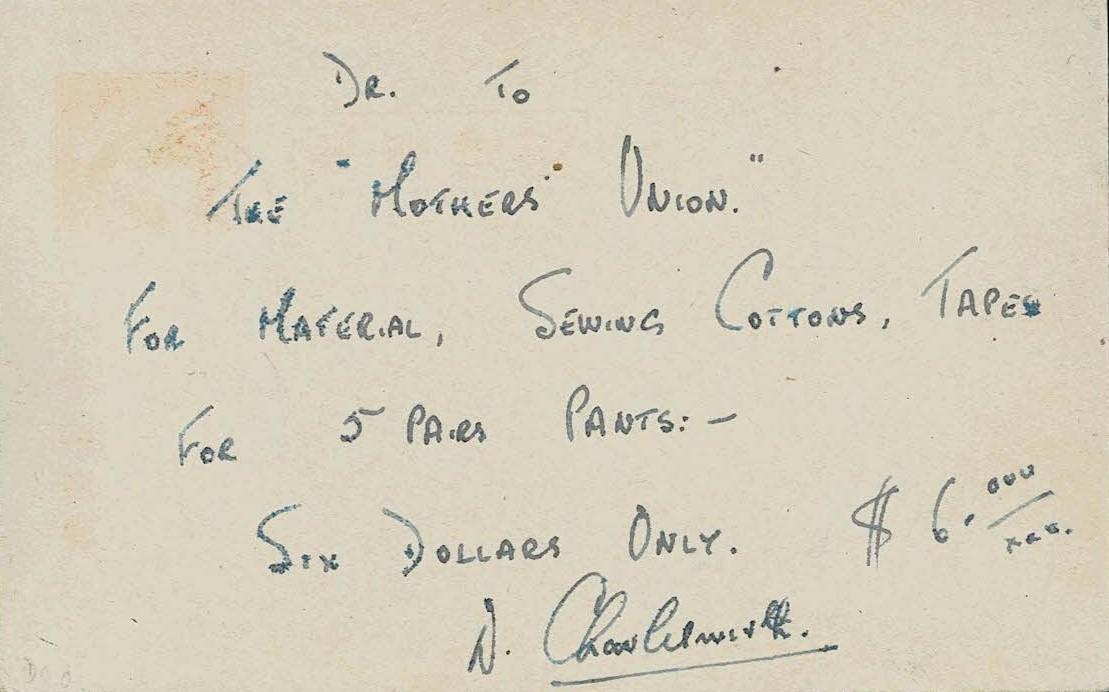 DR. TO
THE "MOTHERS' UNION."
FOR MATERIAL, SEWING COTTONS, TAPES
FOR 5 PAIRS PANTS:-
SIX DOLLARS ONLY. $ 6. ooo/xxx.
D. Charlesworth.